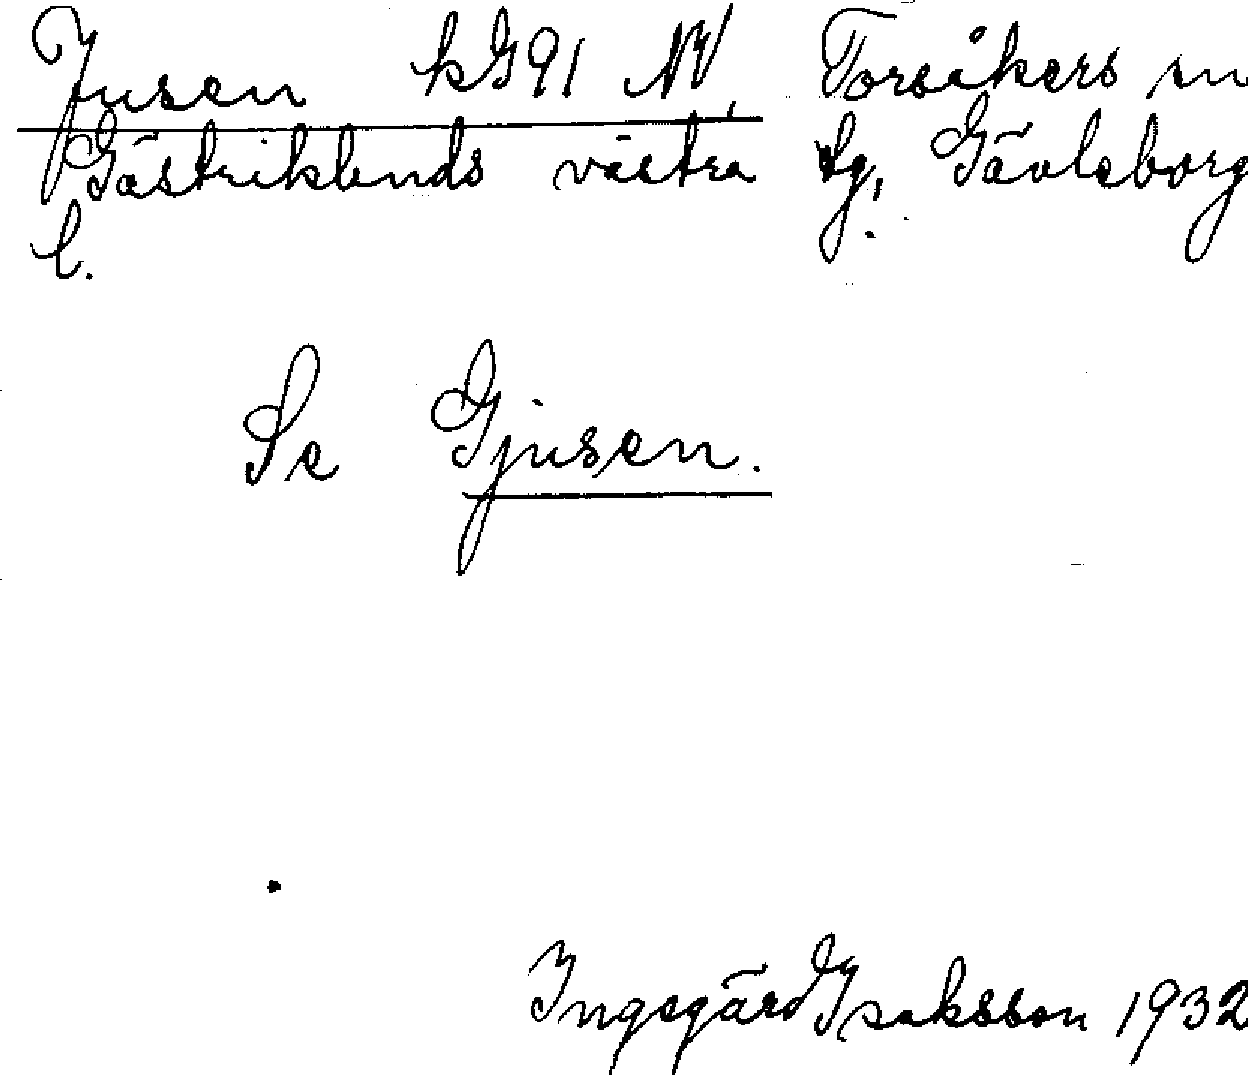 Jusen kG91 NV, Torsåkers sn
Gästriklands västra tg, Gävleborg
l.
Se Gjusen.
Ingegärd Isaksson 1932